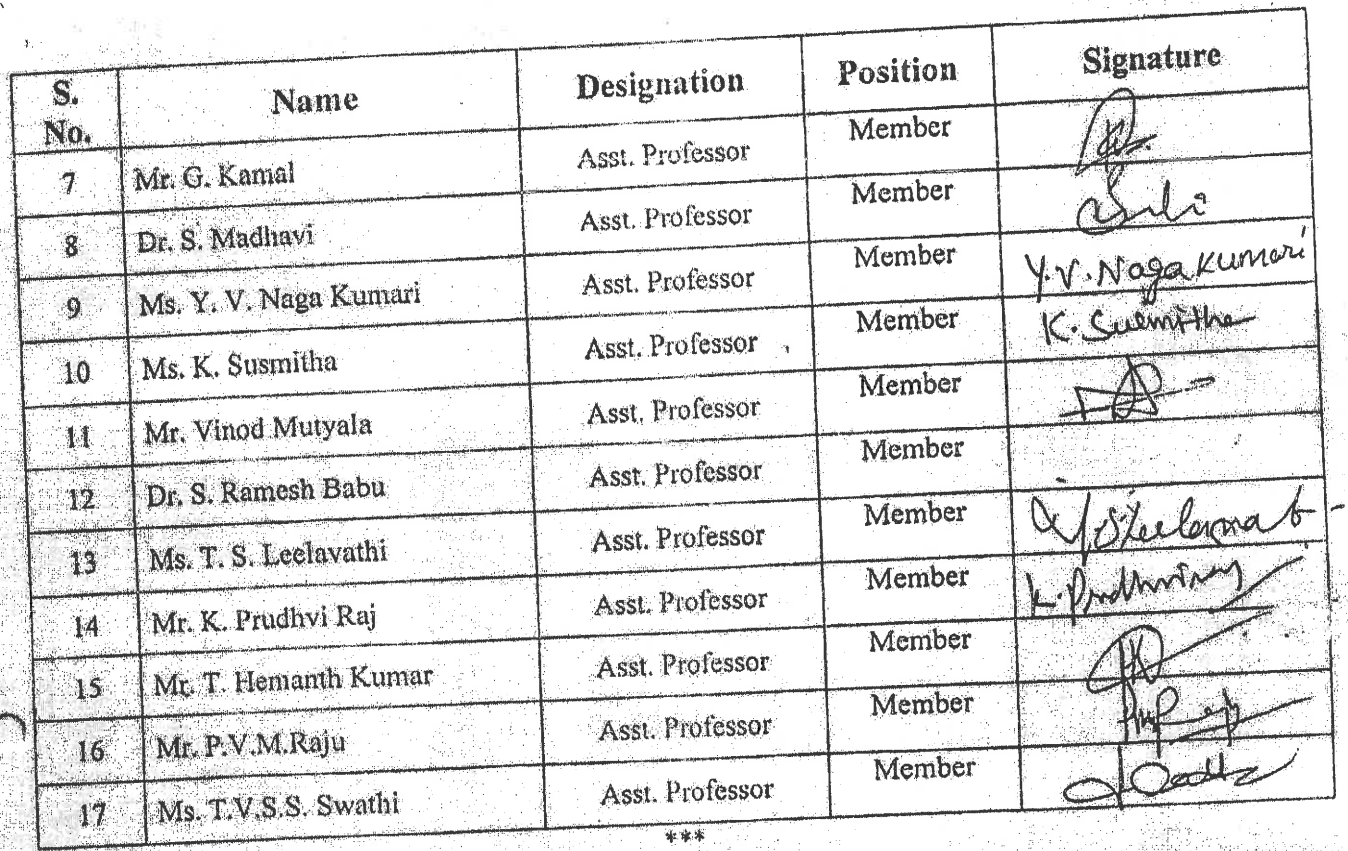 S. No. Name Designation Position Signature
7 Mr. G. Kamal Asst. Professor Member
8 Dr. S. Madhavi Asst. Professor Member
9 Ms. Y. V. Naga Kumari Asst. Professor Member Y.V. Naga Kumari
10 Ms. K. Susmitha Asst. Professor Member K. Susmitha
11 Mr. Vinod Mutyala Asst. Professor Member
12 Dr. S. Ramesh Babu Asst. Professor Member
13 Ms. T. S. Leelavathi Asst. Professor Member
14 Mr. K. Prudhvi Raj Asst. Professor Member K. Prudhviraj
15 Mr. T. Hemanth Kumar Asst. Professor Member
16 Mr. P.V.M.Raju Asst. Professor Member
17 Ms. T.V.S.S. Swathi Asst. Professor Member
***